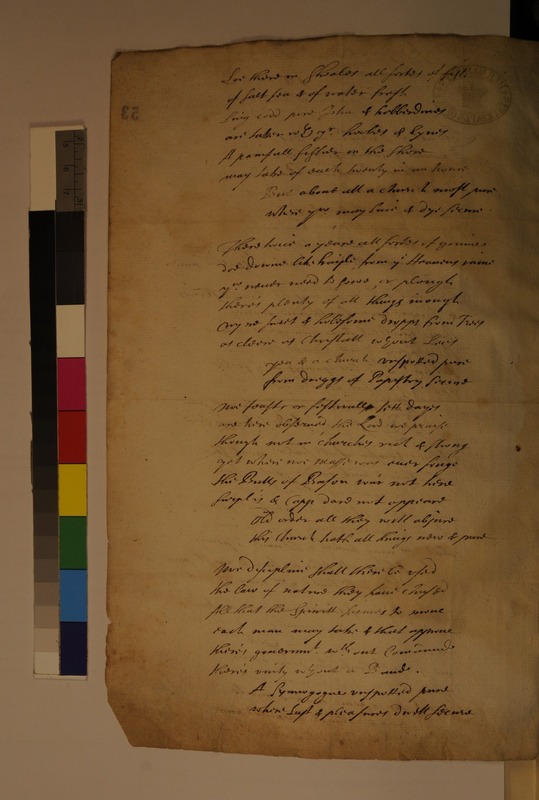 Loe there in Shoales all sortes of fish
of salt sea & of water fresh
Ling codd poore John & habberdines
are taken wth ye hookes & lynes
A painfull fisher on the shore
may take of each twenty in an houre
But above all a church most pure
where you may live & dye secure
There twice a yeare all sortes of graine
doe downe like haile from ye Heavens raine
you never need to sowe or plough
there's plenty of all things inough
wyne sweet & holesome dropps from Trees
as cleere as christall wthout Lees
yea & a church unspotted pure
from dreggs of Papistry secure
Noe feasts or festivall sett dayes
are here observed the Lord we prayse
though not in churches rich & strong
yet where noe Masse was ever songe
the Bulls of Bason war not here
surplis & capp dare not appeare
Old order all they will abjure
this church hath all things new & pure
Noe discipline shall there be used
the law of nature they have chused
all that the spiritt seemes to move
each man may take & that approve
there's governmt wthout Commands
there's unity wthout a Bande
A Synnogogue unspotted pure
where lust & pleasures dwell secure
53